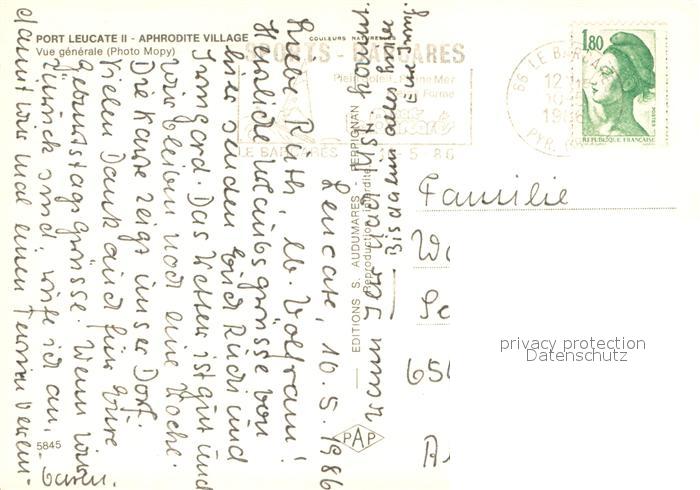 PORT LEUCATE II - APHRODITE VILLAGE
Vue générale (Photo Mopy)
COULEURS NATURELLES
SPORTS - BARCARES
Plein Soleil, Pleine Mer
Pleine Forme
LE BARCARES
16-5 86
66 LE BARCARES
12 H 15
1986
PYR.
1,80
POSTES
REPUBLIQUE FRANÇAISE
Leucate, 10.5.1986
Liebe Ruth, lb. Wolfram!
Herzliche Urlaubsgrüsse von
hier senden Euch Rudi und
Irmgard. Das Wetter ist gut und
wir bleiben noch eine Woche.
Die Karte zeigt unser Dorf.
Vielen Dank auch für Eure
Geburtstagsgrüsse. Wenn wir
zurück sind, rufe ich an,
damit wir mal einen Termin verein-
baren.
wann Ihr nach
kommt.
Bis da
Eure Irmg.
EDITIONS S. AUDUMARES - PERPIGNAN
Reproduction interdite
PAP
5845
Familie
W
65
A
privacy protection
Datenschutz